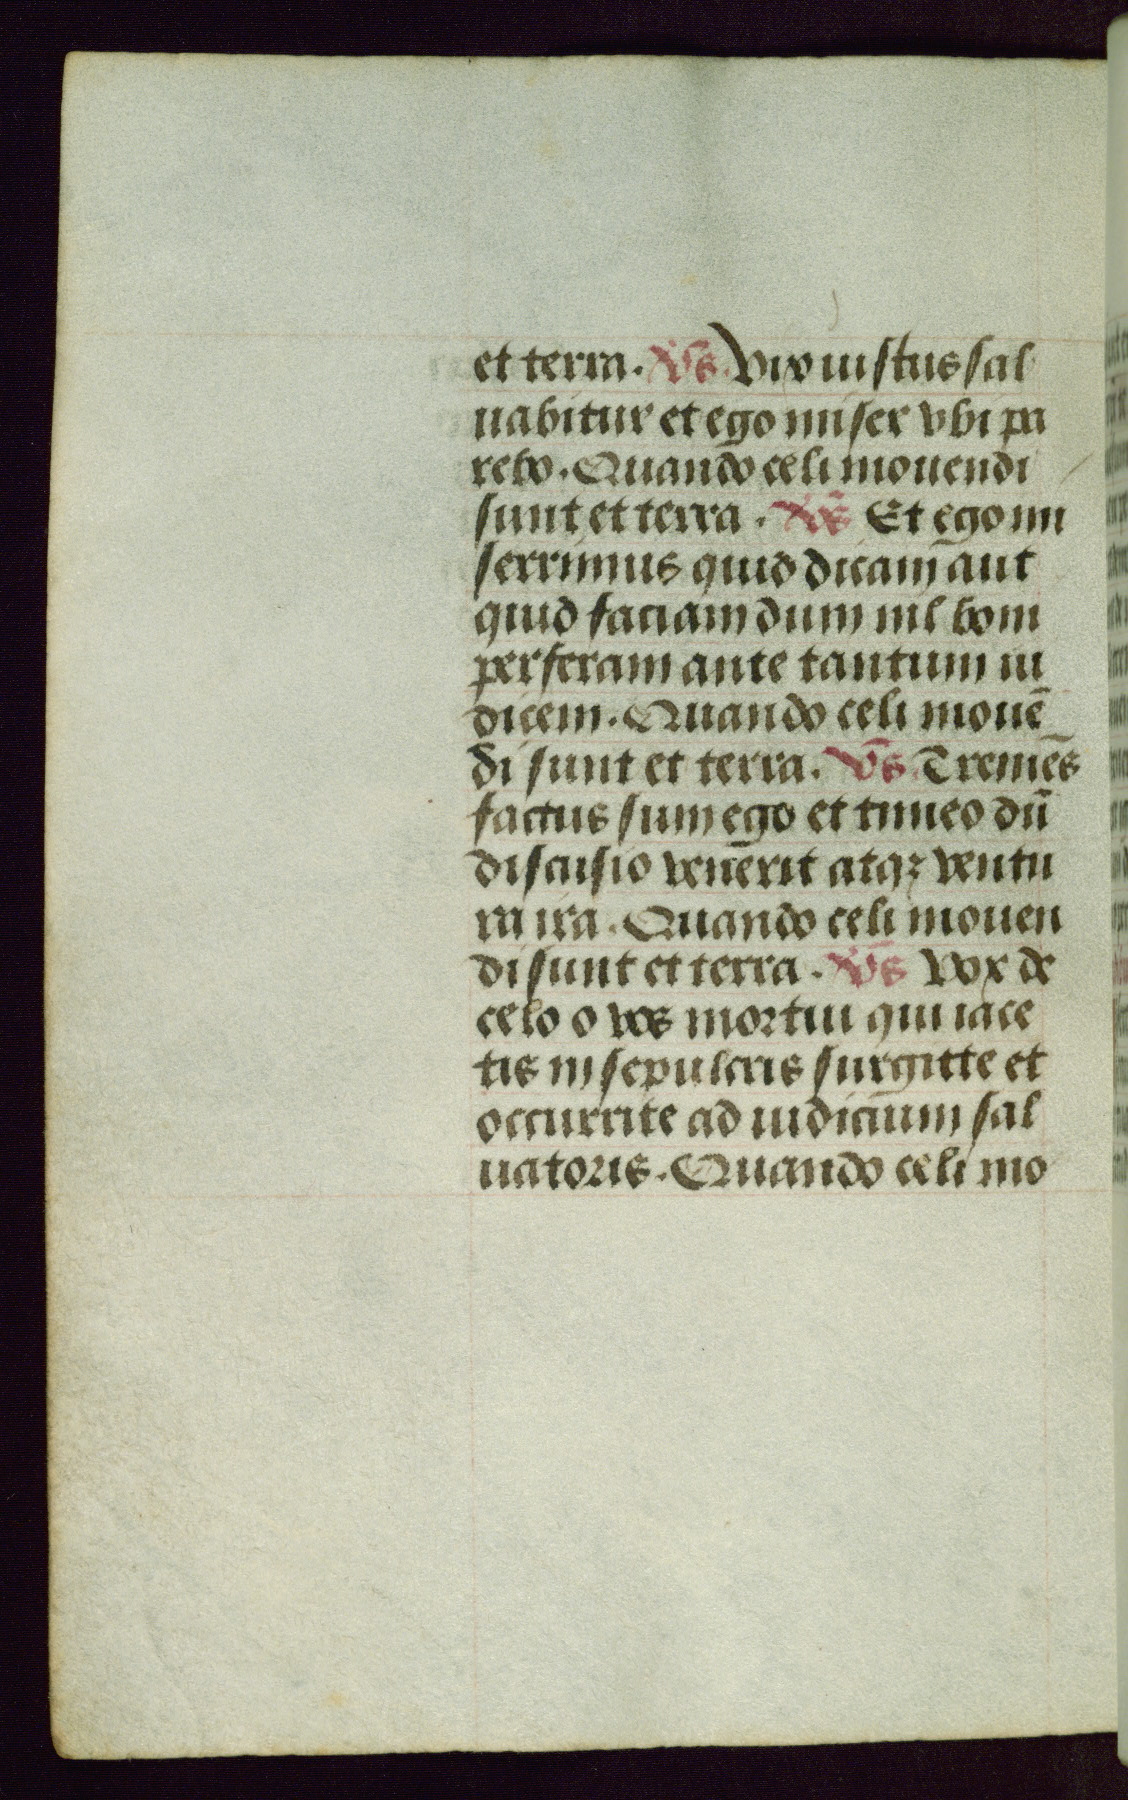 et terra. Vs̄. Vix iustus sal
uabitur et ego miser vbi pa
rebo. Quando celi mouendi
sunt et terra. Vs̄ Et ego mi
serrimus quid dicam aut
quid faciam dum nil boni
perferam ante tantum iu
dicem. Quando celi mouē
di sunt et terra. Vs̄. Tremēs
factus sum ego et timeo dū
discusio venerit atqꝫ ventu
ra ira. Quando celi mouen
di sunt et terra. Vs̄ Vox de
celo o vos mortui qui iace
tis in sepulcris surgitte et
occurrite ad iudicium sal
uatoris. Quando celi mo